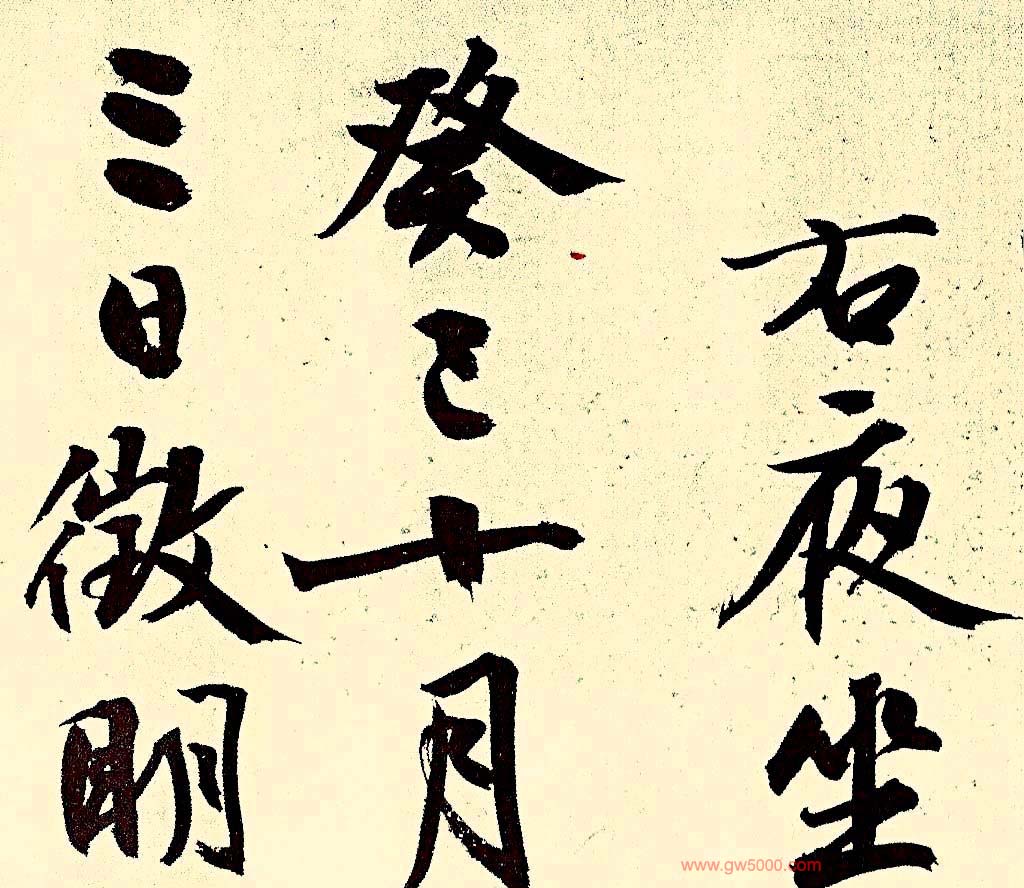 右夜坐
癸巳十月
三日徵明
www.gw5000.com